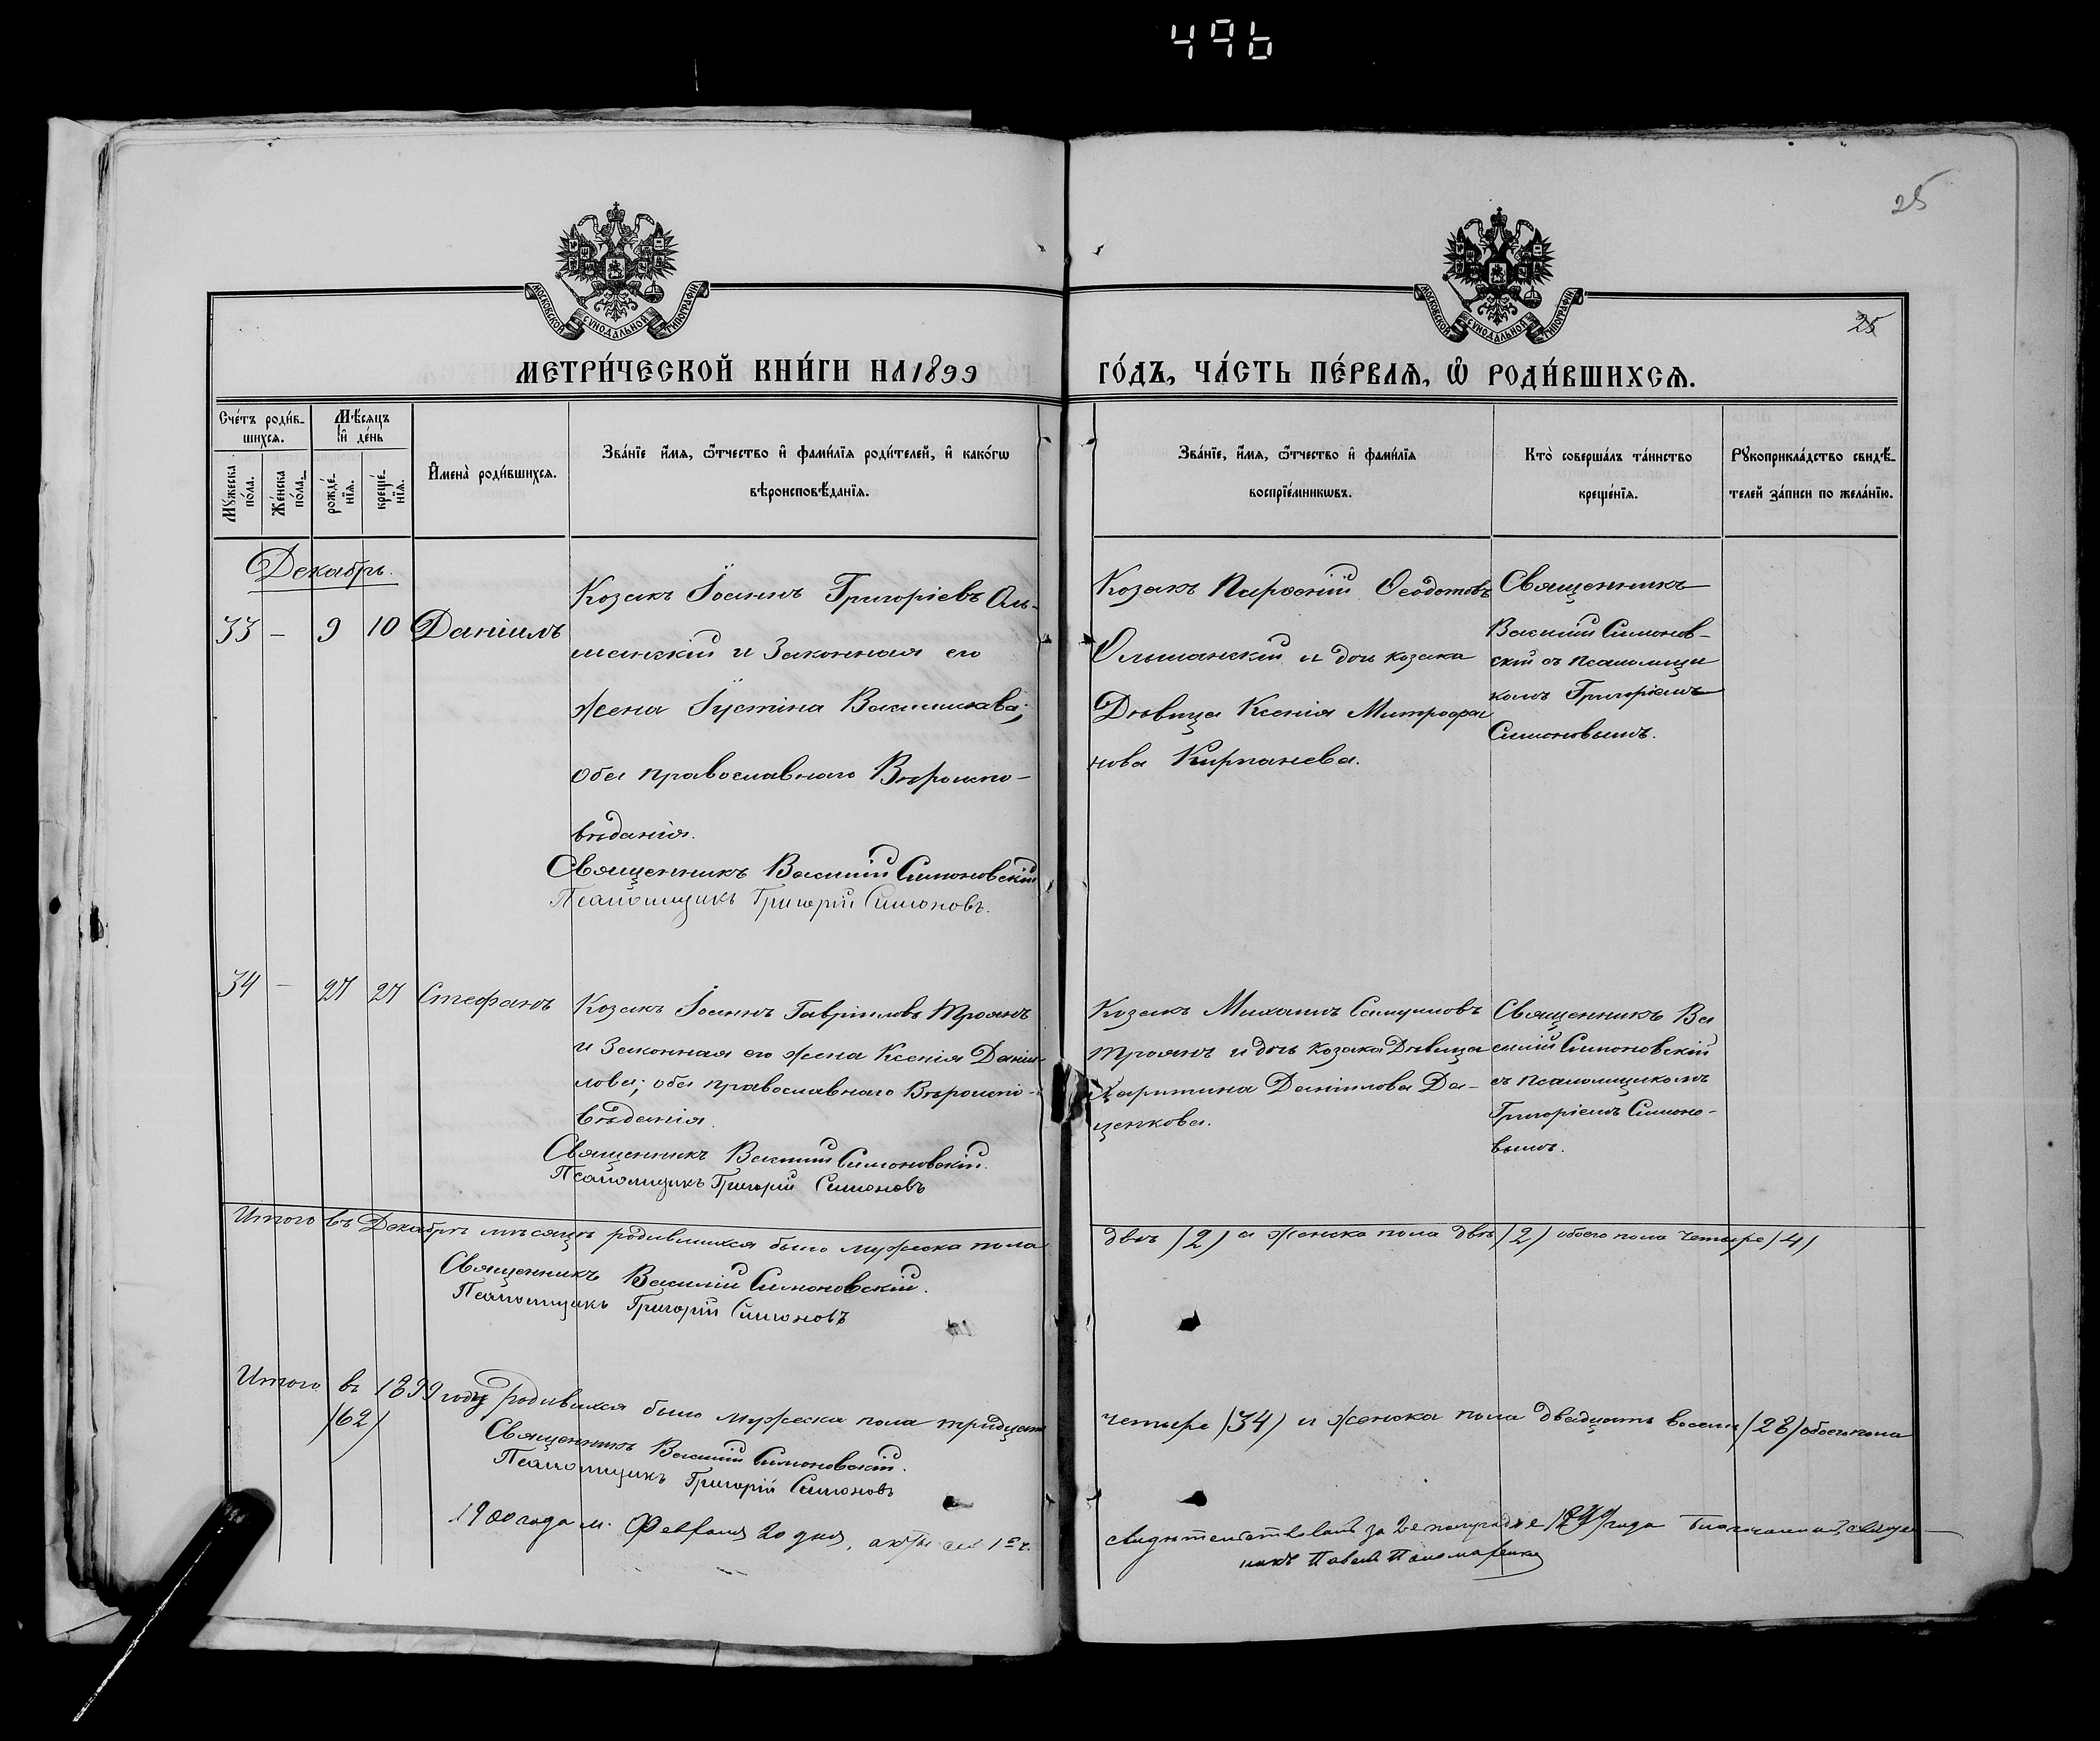 496
25
МОСКОВСКОЙ СѴНОДАЛЬНОЙ ТИПОГРАФІИ
МОСКОВСКОЙ СѴНОДАЛЬНОЙ ТИПОГРАФІИ
25
МЕТРИ́ЧЕСКОЙ КНИ́ГИ НА 1899
ГО́ДЪ, ЧА́СТЬ ПЕ́РВАѦ, Ѽ РОДИ́ВШИХСѦ.
Сче́тъ роди́в-
шихсѧ.
Мѣ́сѧцъ
и҆ де́нь
Мꙋ́жеска
по́ла.
Же́нска
по́ла.
рожде́-
нїѧ.
креще́-
нїѧ.
И҆мена̀ роди́вшихсѧ.
Зва́нїе и҆́мѧ, ѻ҆́тчество и҆ фами́лїѧ роди́телей, и҆ како́гѡ
вѣроисповѣ́данїѧ.
Зва́нїе, и҆́мѧ, ѻ҆́тчество и҆ фами́лїѧ
воспрїе́мникѡвъ.
Кто̀ соверша́лъ та́инство
креще́нїѧ.
Рꙋкоприкла́дство свидѣ́-
телей за́писи по жела́нїю.
Декабрь.
33 – 9 10 Даніилъ
Козакъ Іоаннъ Григоріевъ Оль-
шанскій и законная его
жена Іустина Василиева;
оба православнаго Вѣроиспо-
вѣданія.
Священникъ Василій Симоновскій
Псаломщикъ Григорій Симоновъ.
Козакъ Парѳеній Ѳеодотовъ
Ольшанскій и дочь козака
Дѣвица Ксенія Митрофа
нова Кирпанева.
Священникъ
Василій Симонов-
скій съ псаломщи
комъ Григоріемъ
Симоновымъ.
34 – 27 27 Стефанъ
Козакъ Іоаннъ Гавріиловъ Троянъ
и законная его жена Ксенія Даніи-
лова; оба православнаго Вѣроиспо-
вѣданія.
Священникъ Василій Симоновскій.
Псаломщикъ Григорій Симоновъ
Козакъ Михаилъ Самуиловъ
Троянъ и дочь козака Дѣвица
Харитина Даніилова Да-
ценкова.
Священникъ Ва
силій Симоновскій
съ псаломщикомъ
Григоріемъ Симоно-
вымъ.
Итого въ Декабрѣ мѣсяцѣ родившихся было мужска пола
двѣ (2) а женска пола двѣ (2) обоего пола четыре (4)
Священникъ Василій Симоновскій.
Псаломщикъ Григорій Симоновъ
Итого въ 1899 году родившихся было мужеска пола тридцать
четыре (34) и женска пола двадцать восемь (28) обоего пола
(62)
Священникъ Василій Симоновскій.
Псаломщикъ Григорій Симоновъ
1900 года м. Февраля 20 дня, акты сей 1й ч.
свидѣтельствовалъ за 2е полугодіе 1899 года Благочинный, священ-
никъ Павелъ Пономаренко